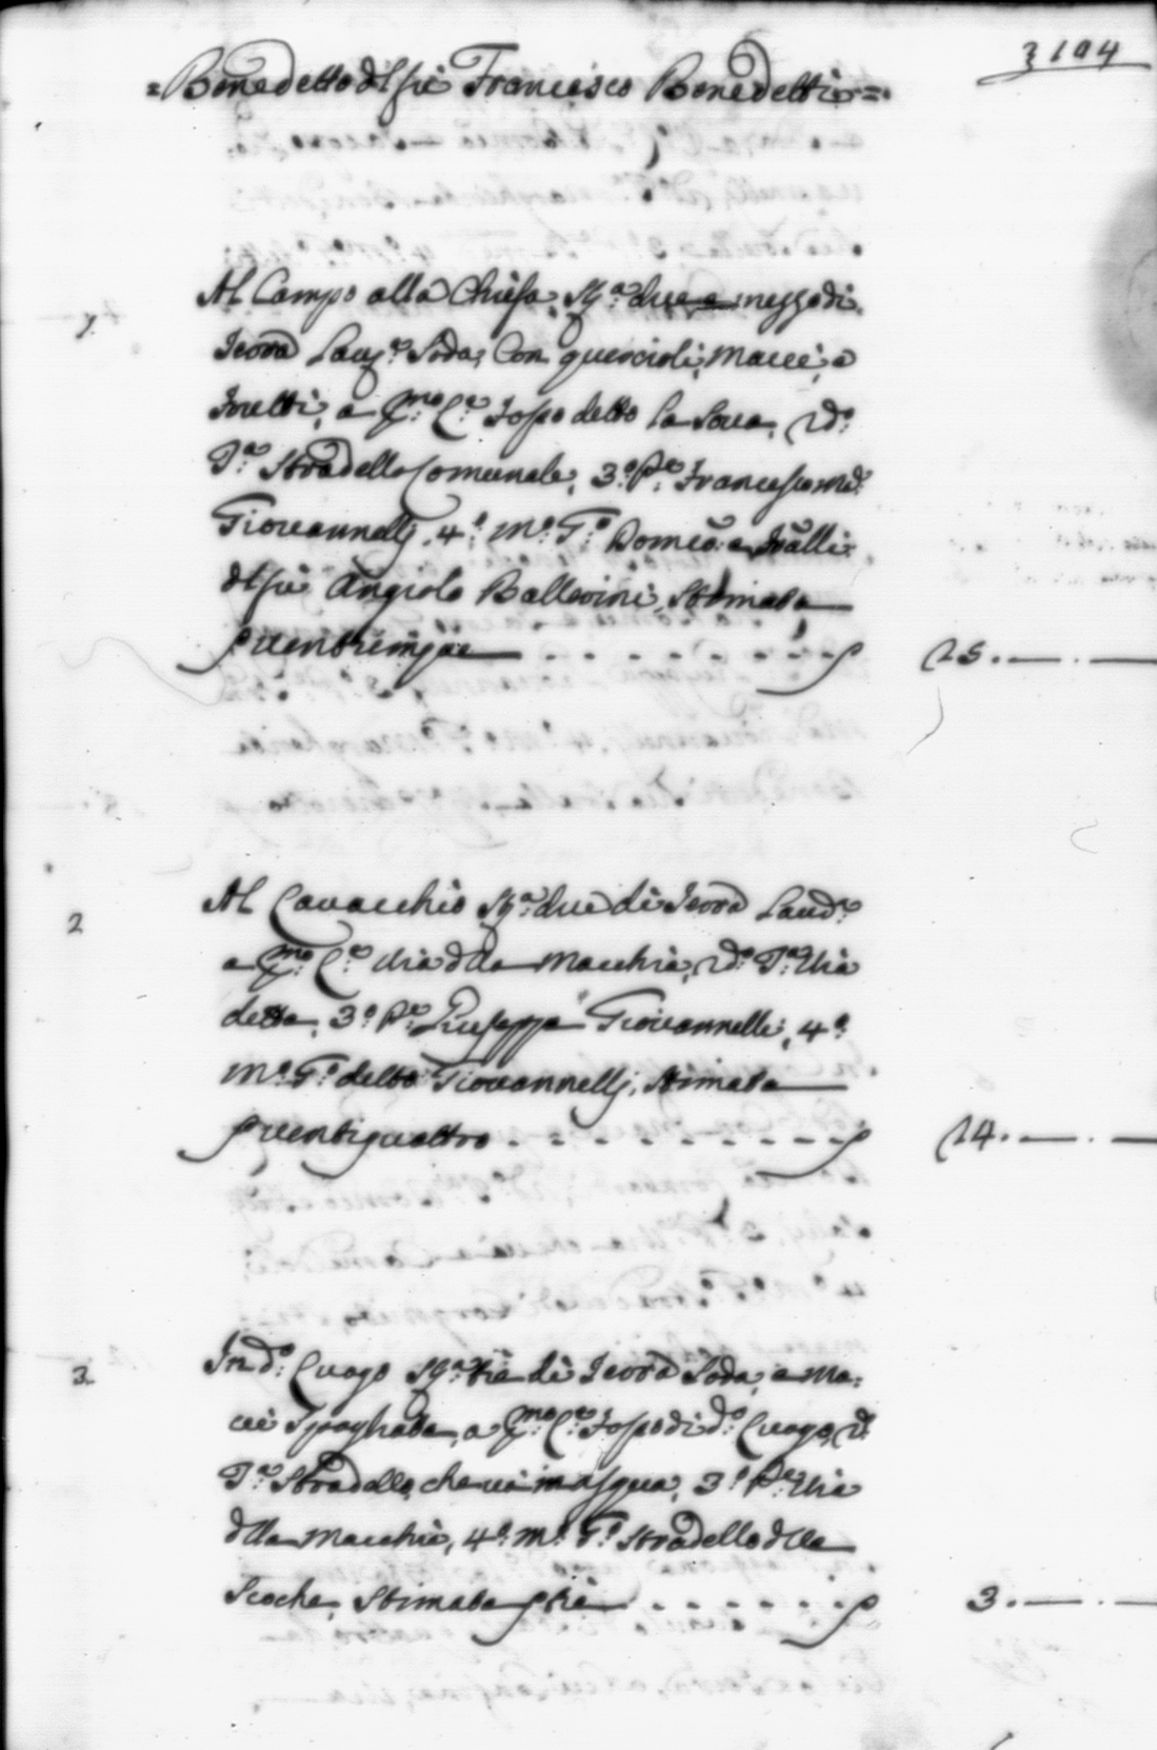 3104
= Benedetto dl fù Francesco Benedetti =
1. Al Campo alla Chiesa, Sta. due e mezzo di
Terra Lau.a Soda, Con quercioli, macei, e
a p.mo C.e fosso detto la 2.do
T.a Stradello Comunale, 3.o P.e Francesco m.a
Giovannelli, 4.o m.o T.o Domco. e fralli
dl fù Angiolo Ballerini, Stimata
p venticinque 25. — . —
2 Al Cavacchio Sta. due di Terra Laud.a
a p.mo C.e via dlla Macchia, 2.do T.a Via
detta, 3.o P.e Giuseppe Giovannelli, 4.o
m.o T.o detto Giovannelli, Stimata
p ventiquattro 24. — . —
3. In d.o Luogo Sta. tre di Terra Soda, e ma=
cei Spogliata, a p.mo C.e fosso di d.o Luogo, 2.d
T.a Stradello, che và in Acqua, 3.o P.e Via
dlla Macchia, 4.o m.o T.o Stradello dlle
Stimata p tre 3. — . —